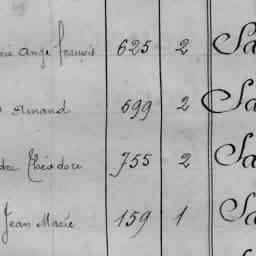 Ange François 625 2 Sa
Armand 699 2 Sa
Théodore 755 2 Sa
Jean Marie 159 1 Sa